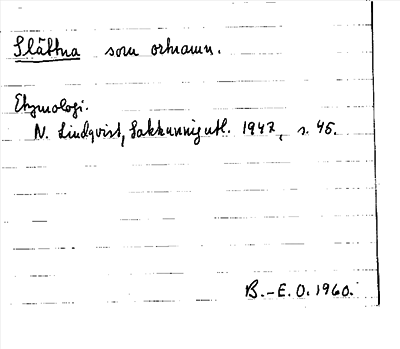 Slättna som ortnamn.
Etymologi.
N. Lindqvist, Sakkunnigutl. 1947, s. 45.
B.-E. O. 1960.